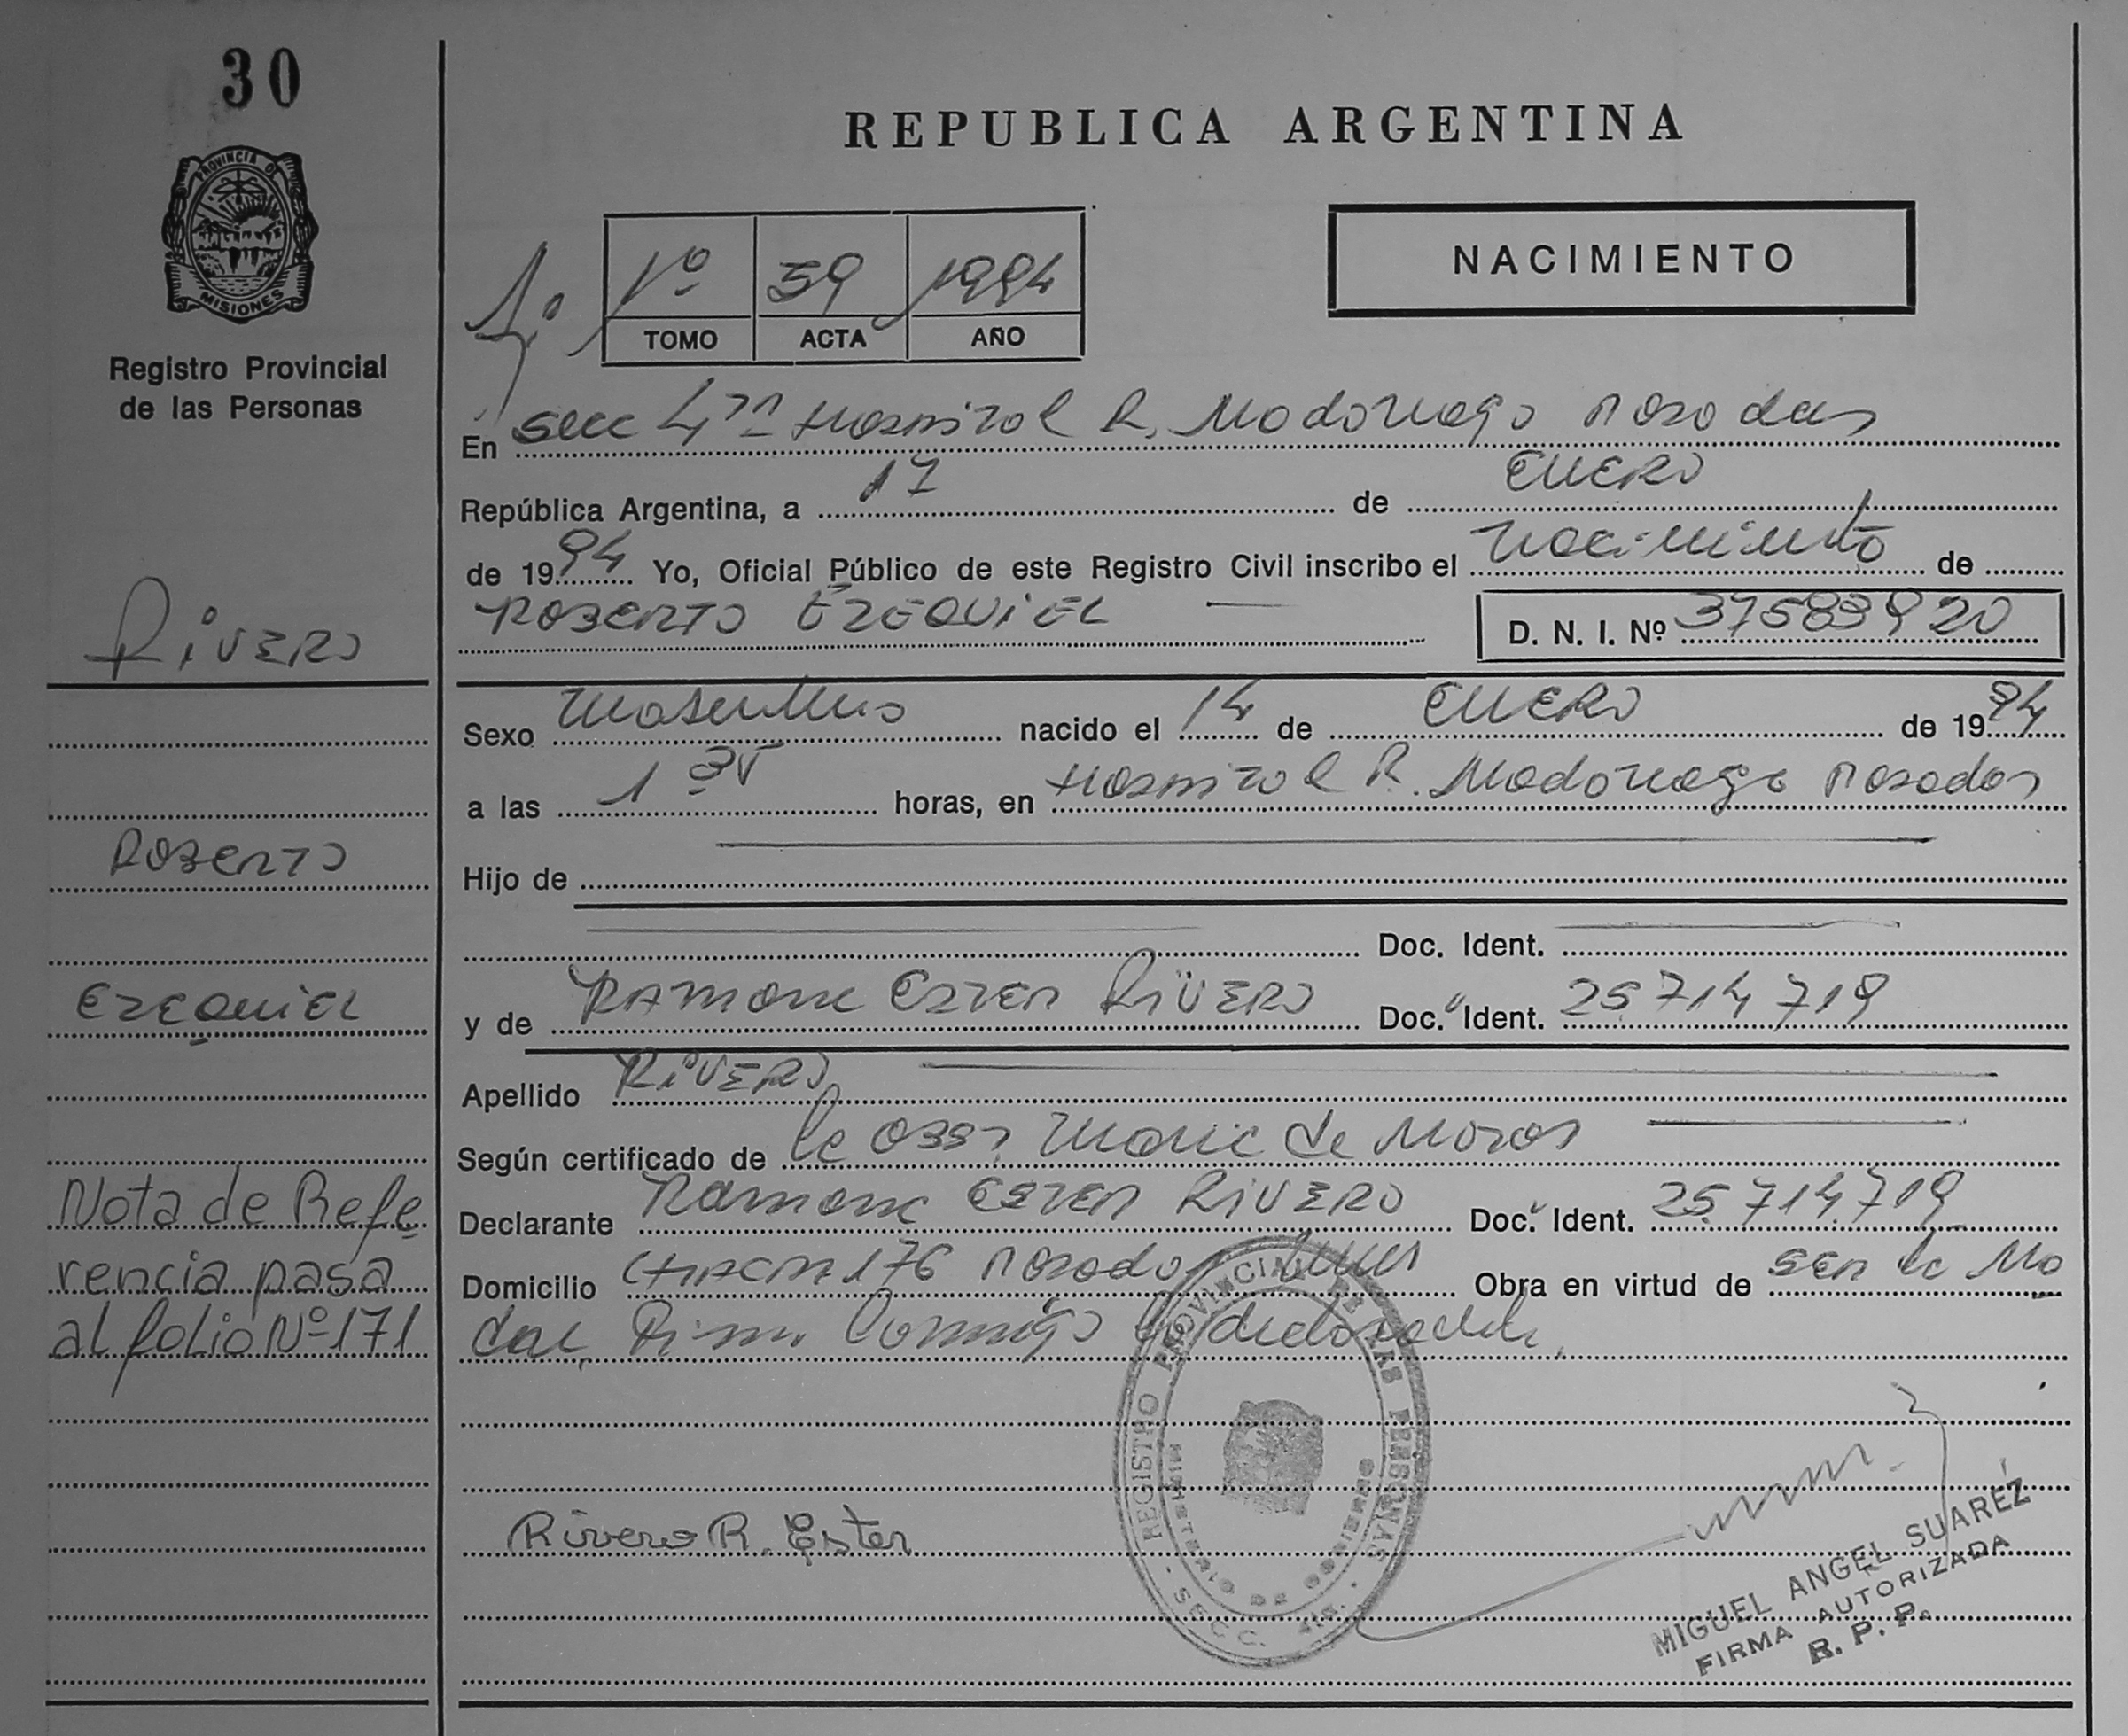 30
PROVINCIA DE
MISIONES
Registro Provincial
de las Personas
REPUBLICA ARGENTINA
1º 59 1994
TOMO ACTA AÑO
NACIMIENTO
En Secc 4ta Hospital R. Madariaga Posadas
República Argentina, a 17 de ENERO
de 1994 Yo, Oficial Público de este Registro Civil inscribo el nacimiento de
ROBERTO EZEQUIEL D. N. I. Nº 37583920
RIVERO
Sexo masculino nacido el 14 de ENERO de 1994
a las 1 horas, en Hospital R. Madariaga Posadas
ROBERTO
Hijo de
Doc. Ident.
EZEQUIEL
y de RAMONA ESTER RIVERO Doc. Ident. 25.714.719
Apellido RIVERO
Según certificado de la Obst. Maria de
Nota de Refe
rencia pasa
al folio Nº 171
Declarante RAMONA ESTER RIVERO Doc. Ident. 25.714.719
Domicilio CHACRA 176 Posadas Obra en virtud de ser la Ma
dre, Firma Conmigo
REGISTRO PROVINCIAL DE LAS PERSONAS
MINISTERIO DE GOBIERNO
SECC. 4ta.
Rivero R. Ester
MIGUEL ANGEL SUAREZ
FIRMA AUTORIZADA
R. P. P.